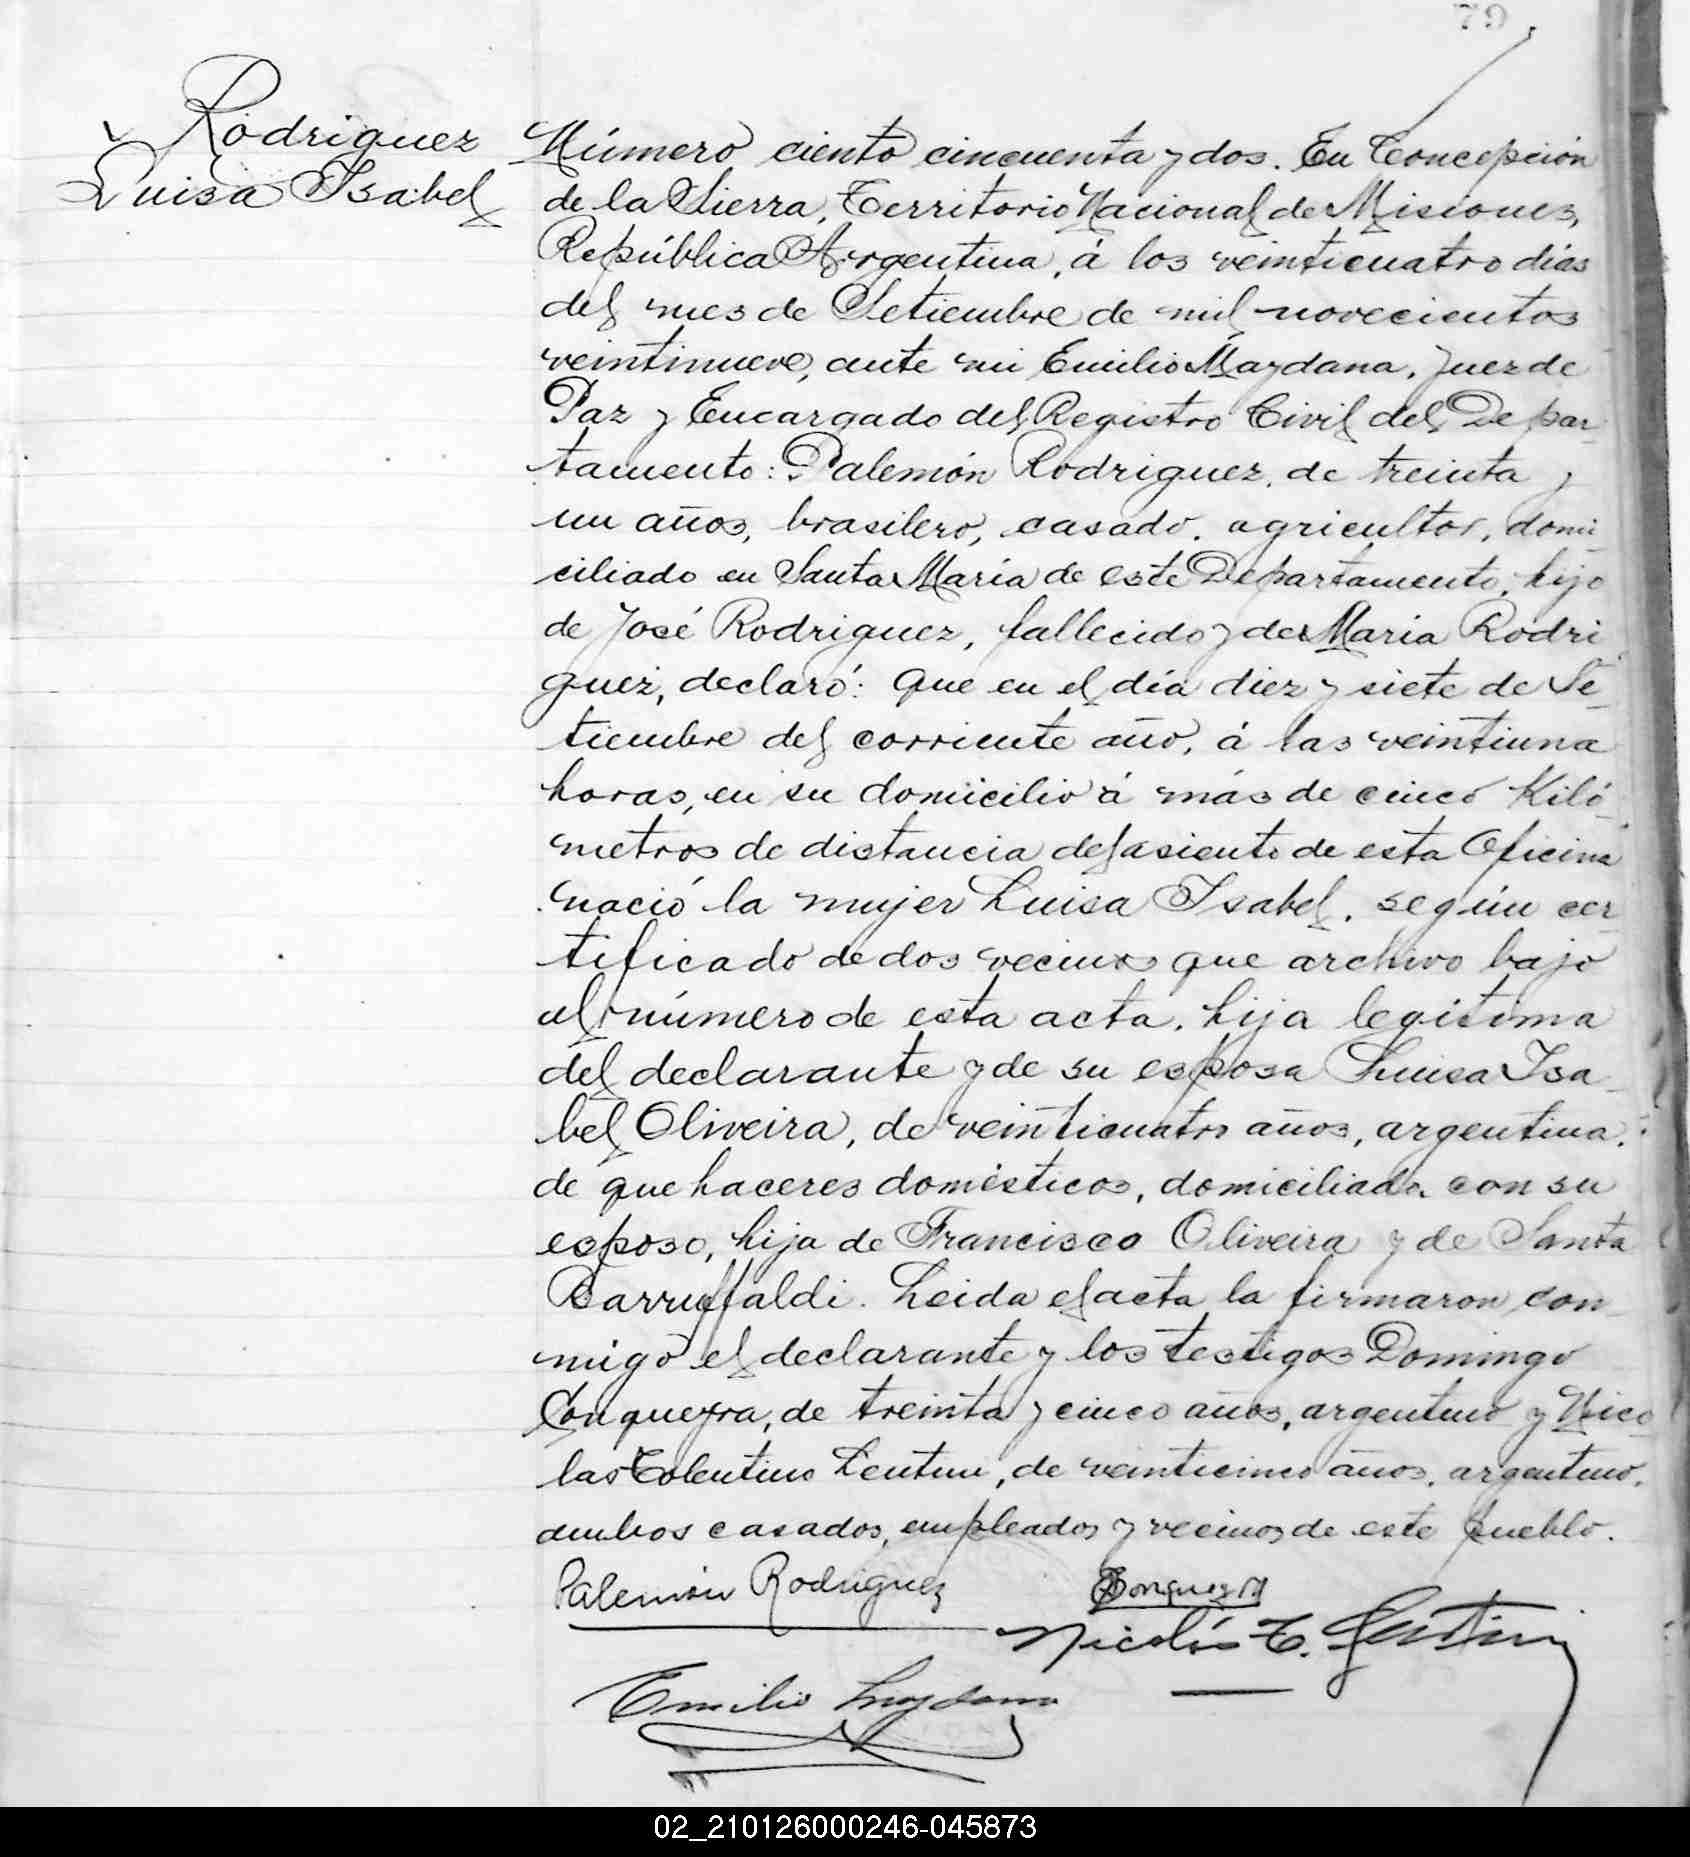 79
Rodriguez
Luisa Isabel
Número ciento cincuenta y dos. En Concepción
de la Sierra, Territorio Nacional de Misiones,
República Argentina, á los veinticuatro dias
del mes de Setiembre de mil novecientos
veintinueve, ante mi Emilio Maydana, Juez de
Paz y Encargado del Registro Civil del Depar-
tamento: Palemón Rodriguez, de treinta y
un años, brasilero, casado, agricultor, domi-
ciliado en Santa María de este Departamento, hijo
de José Rodriguez, fallecido y de Maria Rodri
guez, declaró: Que en el día diez y siete de Se-
tiembre del corriente año, á las veintiuna
horas, en su domicilio á más de cinco Kiló-
metros de distancia del asiento de esta Oficina
nació la mujer Luisa Isabel, según cer-
tificado de dos vecinos que archivo bajo
el número de esta acta, hija legitima
del declarante y de su esposa Luisa Isa-
bel Oliveira, de veinticuatro años, argentina,
de que haceres domésticos, domiciliada con su
esposo, hija de Francisco Oliveira y de Santa
Barruffaldi. Leida el acta la firmaron con-
migo el declarante y los testigos Domingo
Conqueyra, de treinta y cinco años, argentino y Nico-
las Tolentino , de veinticinco años, argentino,
ambos casados, empleados y vecinos de este pueblo.
Palemón Rodriguez
Nicolás T.
Emilio Maydana
02_210126000246-045873